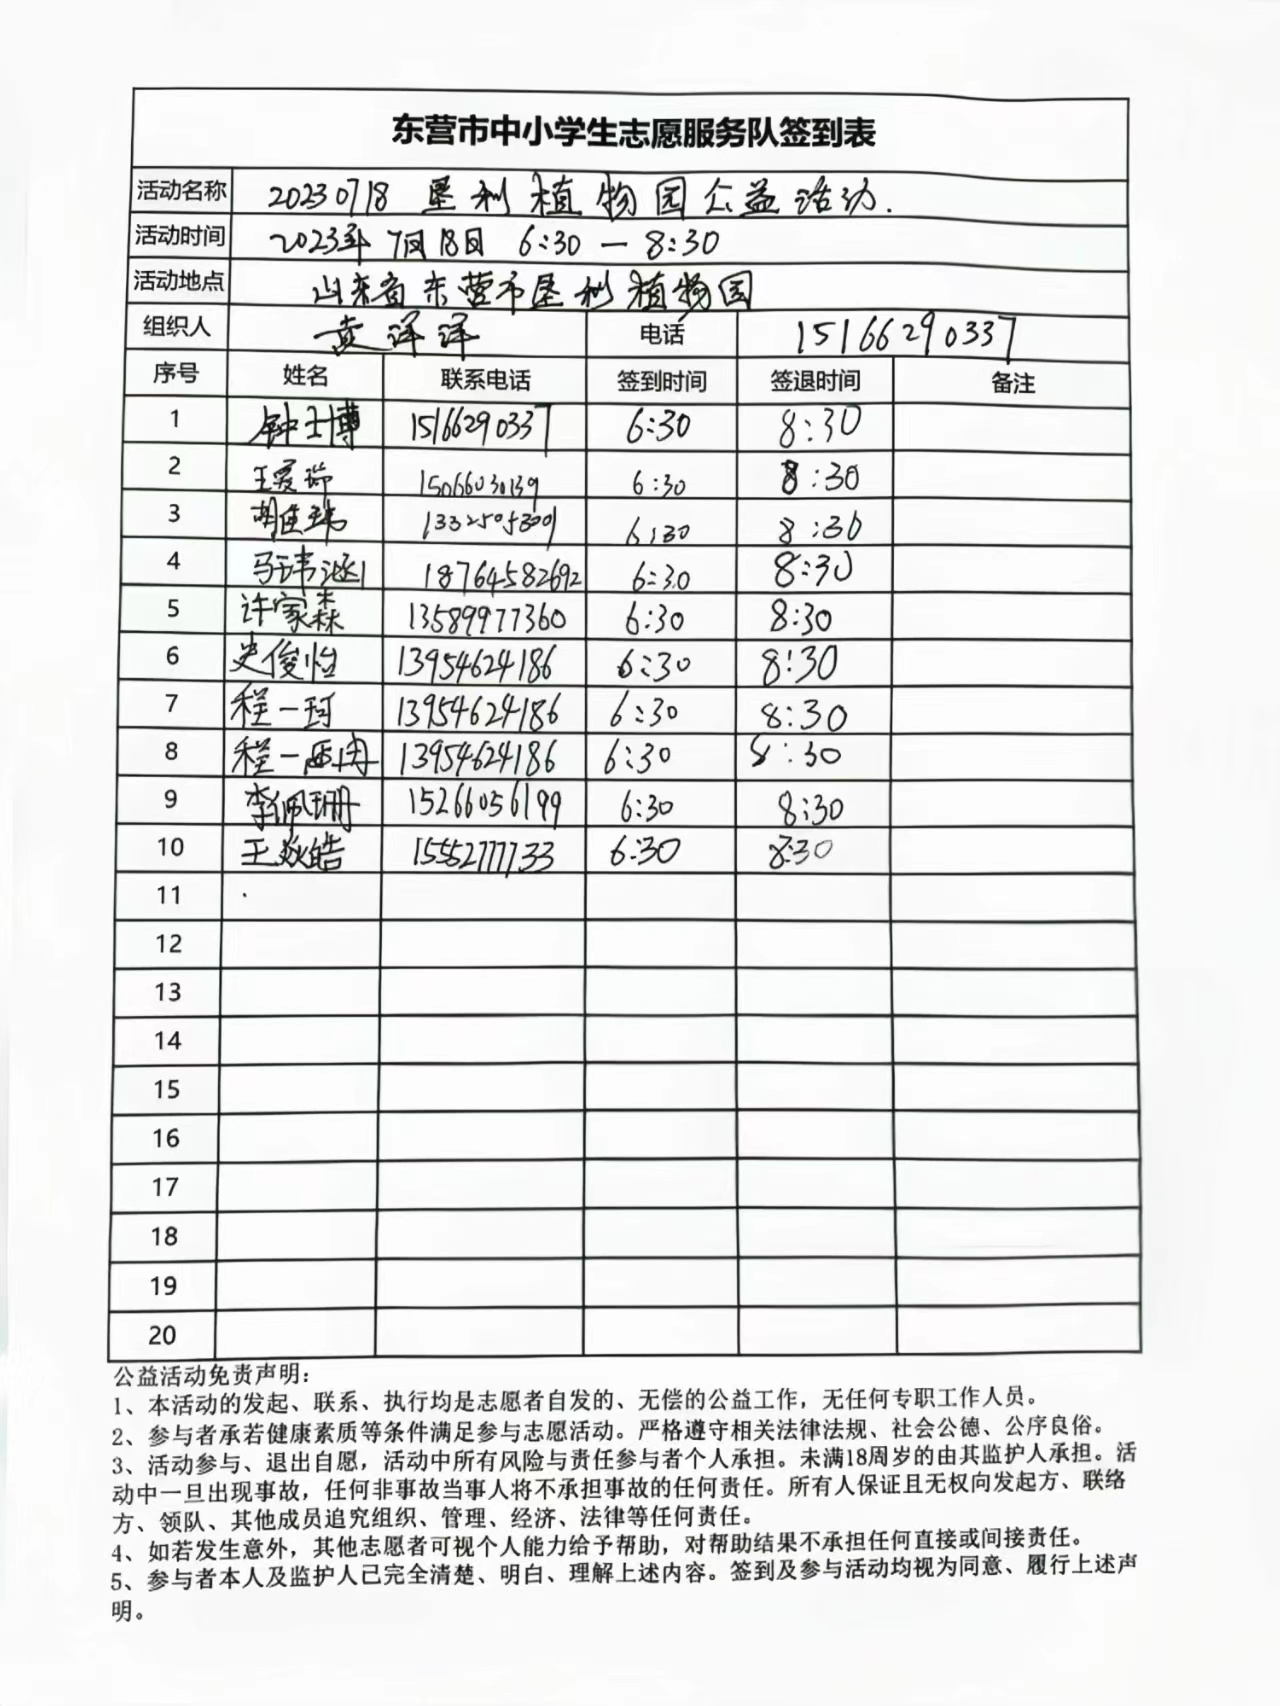 东营市中小学生志愿服务队签到表
活动名称 20230718 垦利植物园公益活动.
活动时间 2023年7月18日 6:30 — 8:30
活动地点 山东省东营市垦利植物园
组织人 黄洋洋 电话 15166290337
序号 姓名 联系电话 签到时间 签退时间 备注
1 钟士博 15166290337 6:30 8:30
2 15066030139 6:30 8:30
3 13325053001 6:30 8:30
4 马玮涵 18764582692 6:30 8:30
5 许家森 13589977360 6:30 8:30
6 史俊怡 13954624186 6:30 8:30
7 程一珂 13954624186 6:30 8:30
8 程一 13954624186 6:30 8:30
9 李佩珊 15266056199 6:30 8:30
10 王焱皓 15552777733 6:30 8:30
11
12
13
14
15
16
17
18
19
20
公益活动免责声明：
1、本活动的发起、联系、执行均是志愿者自发的、无偿的公益工作，无任何专职工作人员。
2、参与者承若健康素质等条件满足参与志愿活动。严格遵守相关法律法规、社会公德、公序良俗。
3、活动参与、退出自愿，活动中所有风险与责任参与者个人承担。未满18周岁的由其监护人承担。活
动中一旦出现事故，任何非事故当事人将不承担事故的任何责任。所有人保证且无权向发起方、联络
方、领队、其他成员追究组织、管理、经济、法律等任何责任。
4、如若发生意外，其他志愿者可视个人能力给予帮助，对帮助结果不承担任何直接或间接责任。
5、参与者本人及监护人已完全清楚、明白、理解上述内容。签到及参与活动均视为同意、履行上述声
明。